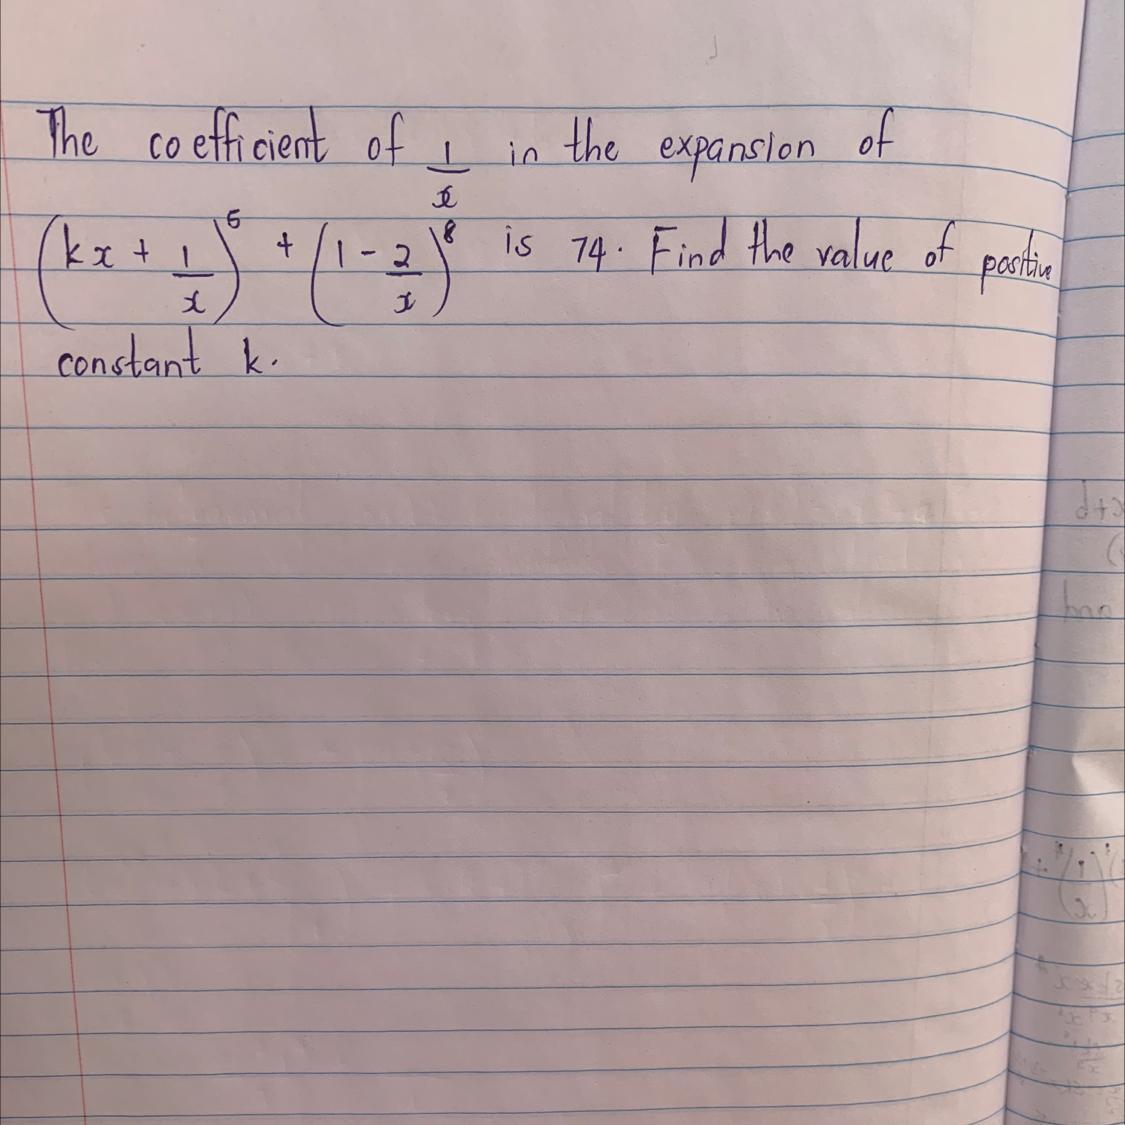 The coefficient of 1/x in the expansion of
(kx + 1/x)^5 + (1 - 2/x)^8 is 74. Find the value of positive
constant k.